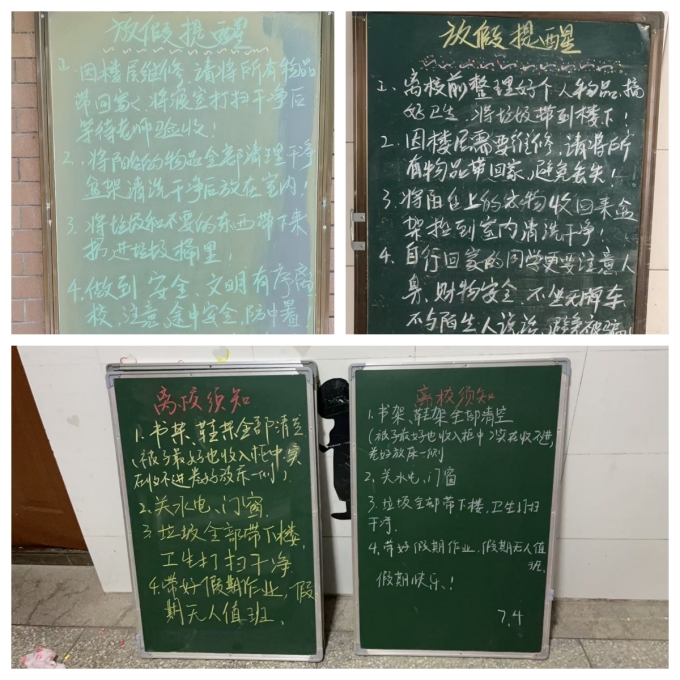 放假提醒
1. 因楼层维修，请将所有物品
带回家，将寝室打扫干净后
等待老师验收！
2、将阳台的物品全部清理干净
盆架清洗干净后放在室内！
3、将垃圾和不要的东西带下来
扔进垃圾桶里！
4.做到安全、文明有序离
校，注意途中安全，防中暑！
放假提醒
1、离校前整理好个人物品，搞
好卫生，将垃圾带到楼下！
2、因楼层需要维修，请将所
有物品带回家，避免丢失！
3、将阳台上的衣物收回来盆
架搬到室内清洗干净！
4、自行回家的同学更要注意人
身、财物安全 不坐无牌车、
不与陌生人说话，避免被骗！
离校须知
1、书架、鞋架全部清空
(被子最好也收入柜中，实
在收不进卷好放床一侧)
2、关水电、门窗
3、垃圾全部带下楼，
卫生打扫干净
4.带好假期作业，假
期无人值班、
离校须知
1、书架、鞋架全部清空
(被子最好也收入柜中)实在收不进，
卷好放床一侧
2、关水电、门窗
3、垃圾全部带下楼、卫生打扫
干净、
4、带好假期作业、假期无人值
班、
假期快乐、！
7.4